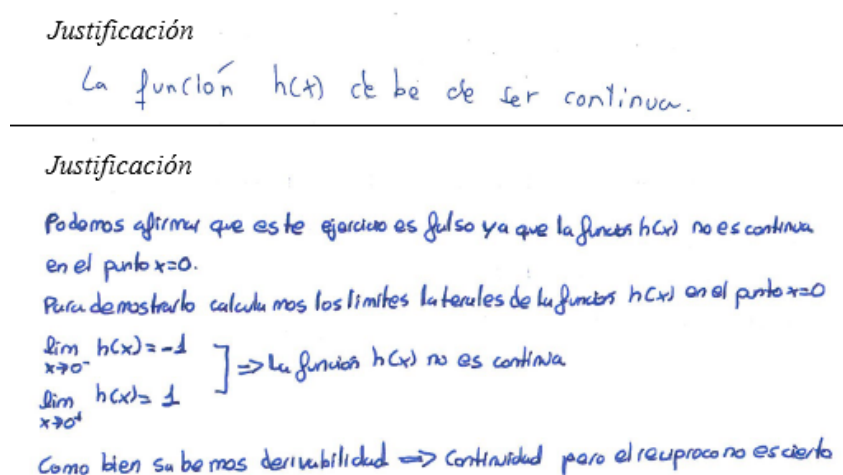 Justificación
La función h(x) debe de ser continua.
Justificación
Podemos afirmar que este ejercicio es falso ya que la función h(x) no es continua
en el punto x=0.
Para demostrarlo calculamos los límites laterales de la función h(x) en el punto x=0
lim h(x) = -1
x→0⁻
] ⇒ la función h(x) no es continua
lim h(x) = 1
x→0⁺
Como bien sabemos derivabilidad ⇒ continuidad pero el reciproco no es cierto